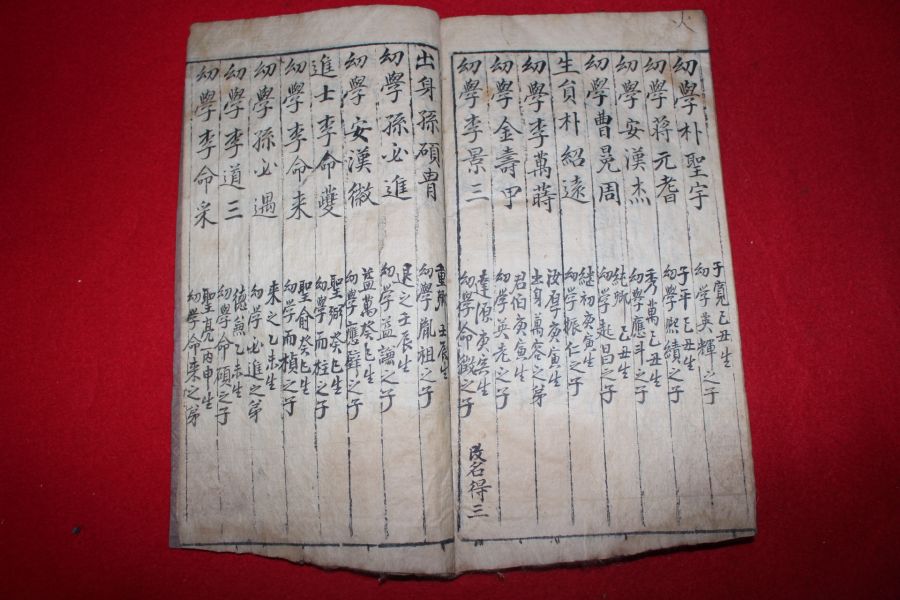 火
幼學朴聖宇
子寬己丑生
幼學英輝之子
幼學蔣元耆
子平己丑生
幼學熙績之子
幼學安漢杰
秀萬己丑生
幼學應斗之子
幼學曹晃周
己丑生
幼學起昌之子
生員朴紹遠
継初庚寅生
幼學振仁之子
幼學李萬蔣
庚寅生
出身萬容之弟
幼學金壽甲
君伯庚寅生
幼學英老之子
幼學李景三
達伯庚寅生
幼學命徵之子
改名得三
出身孫碩胄
重卿壬辰生
幼學胤祖之子
幼學孫必進
退之壬辰生
幼學益謙之子
幼學安漢徽
益萬癸巳生
幼學應辟之子
進士李命夔
聖卿癸巳生
幼學而柱之子
幼學李命来
聖俞癸巳生
幼学而楨之子
幼學孫必遇
来之乙未生
幼学必進之弟
幼學李道三
德兼乙未生
幼學命碩之子
幼學李命采
聖亮丙申生
幼學命来之弟